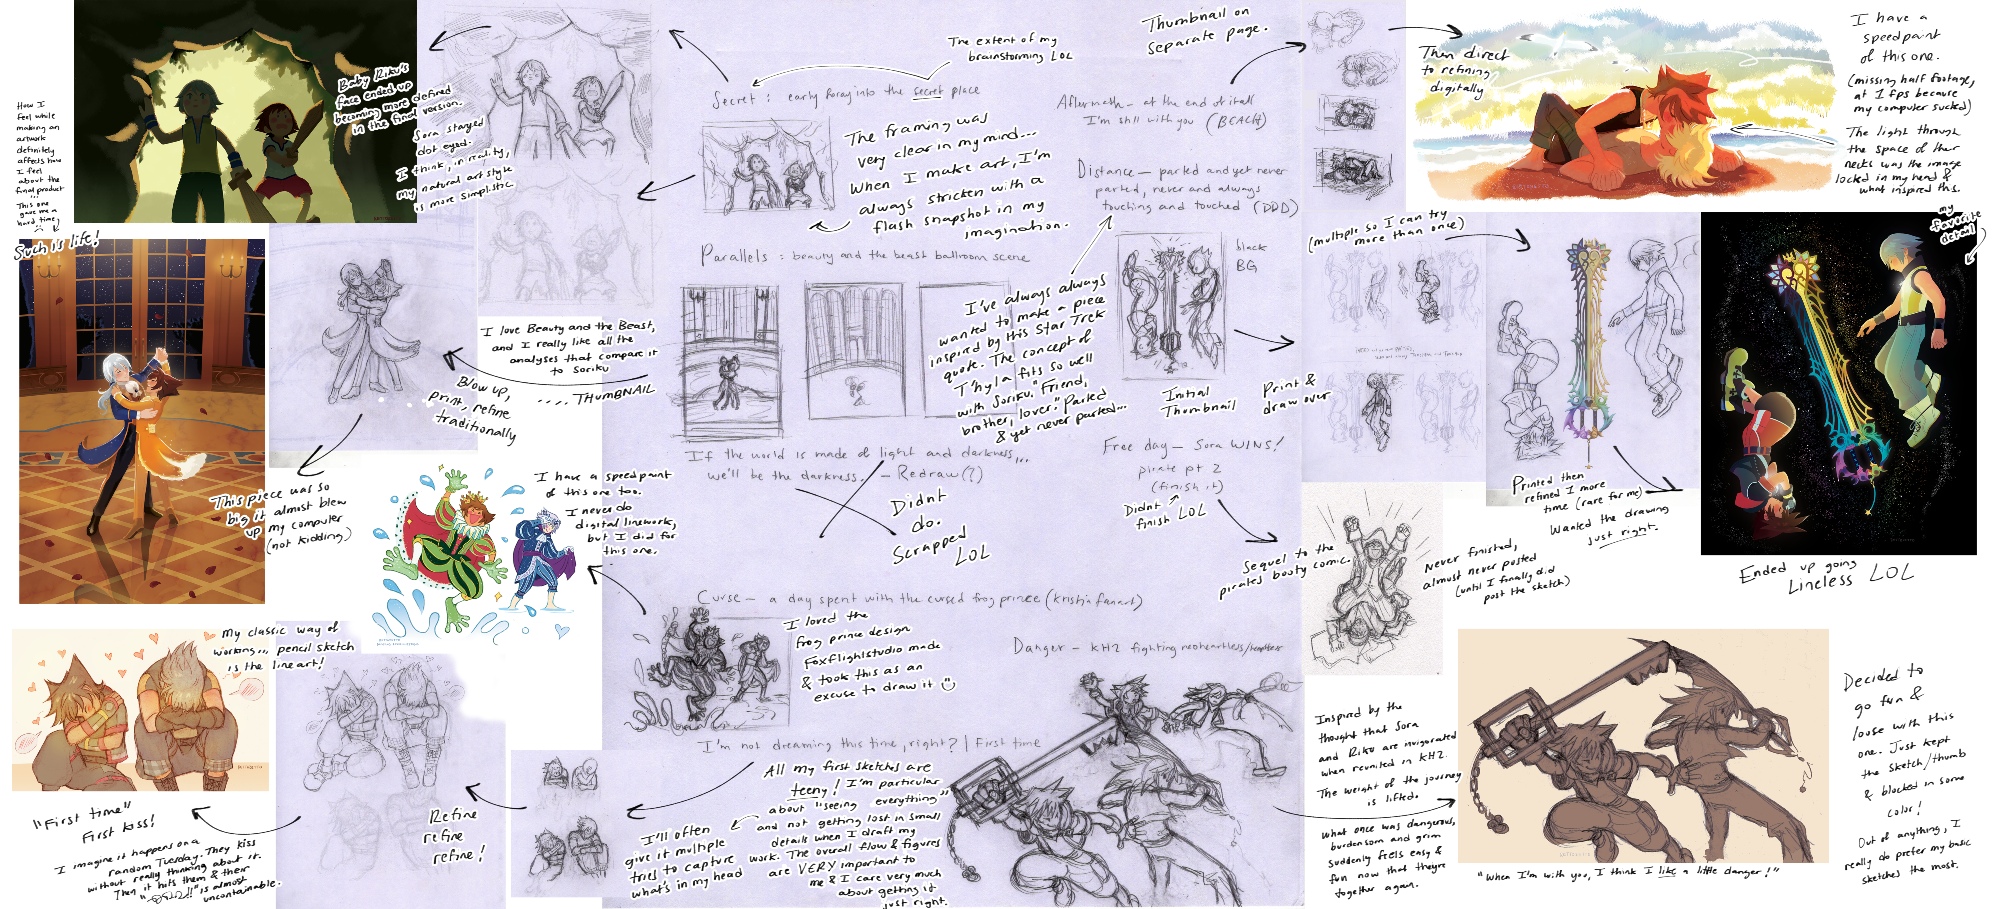 How I
feel while
making an
artwork
definitely
affects how
I feel
about the
final product
...
This one
gave me a
hard time,
Such is life!
Baby Riku's
face ended up
becoming more defined
in the final version.
Sora stayed
dot eyed.
I think, in reality,
my natural art style
is more simplistic.
The extent of my
brainstorming LOL
Secret: early foray into the secret place
The framing was
very clear in my mind...
When I make art, I'm
always stricken with a
flash snapshot in my
imagination.
Thumbnail on
separate page.
Aftermath - at the end of it all
I'm still with you (BEACH)
Then direct
to refining
digitally
I have a
speedpaint
of this one.
(missing half footage,
at 1 fps because
my computer sucked)
The light through
the space of their
necks was the image
locked in my head &
what inspired this.
Distance - parted and yet never
parted, never and always
touching and touched (DDD)
Parallels: beauty and the beast ballroom scene
I love Beauty and the Beast,
and I really like all the
analyses that compare it
to Soriku
.... THUMBNAIL
Blow up,
print, refine
traditionally
This piece was so
big it almost blew
up my computer
(not kidding)
I've always always
wanted to make a piece
inspired by this Star Trek
quote. The concept of
T'hyla fits so well
with Soriku. "Friend,
brother, lover." Parted
& yet never parted...
black
BG
Initial
Thumbnail
Print &
draw over
(multiple so I can try
more than once)
Printed then
refined 1 more
time (rare for me)
Wanted the drawing
just right.
my
favorite
detail
Ended up going
Lineless LOL
If the world is made of light and darkness...
we'll be the darkness. - Redraw(?)
Didnt
do.
Scrapped
LOL
Free day - Sora WINS!
pirate pt 2
(finish it)
Didnt
finish LOL
Sequel to the
pirates booty comic.
Never finished,
almost never posted
(until I finally did
post the sketch)
I have a speedpaint
of this one too.
I never do
digital linework,
but I did for
this one.
Curse - a day spent with the cursed frog prince (kristin fanart)
I loved the
frog prince design
Foxflightstudio made
& took this as an
excuse to draw it
Danger - KH2 fighting neoheartless/
I'm not dreaming this time, right? | First time
All my first sketches are
teeny! I'm particular
about "seeing everything"
and not getting lost in small
details when I draft my
work. The overall flow & figures
are VERY important to
me & I care very much
about getting it
just right.
I'll often
give it multiple
tries to capture
what's in my head
Refine
refine
refine!
My classic way of
working... pencil sketch
is the lineart!
"First time"
First kiss!
I imagine it happens on a
random Tuesday. They kiss
without really thinking about it.
Then it hits them & their
is almost
uncontainable.
Inspired by the
thought that Sora
and Riku are invigorated
when reunited in KH2.
The weight of the journey
is lifted.
What once was dangerous,
burdensom and grim
suddenly feels easy &
fun now that theyre
together again.
"When I'm with you, I think I like a little danger!"
Decided to
go fun &
loose with this
one. Just kept
the sketch/thumb
& blocked in some
color!
Out of anything, I
really do prefer my basic
sketches the most.